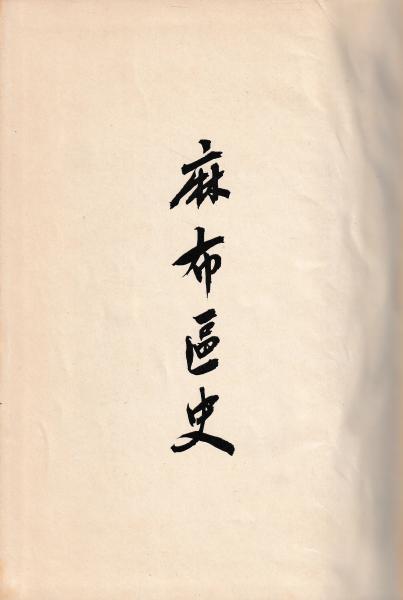 麻布區史